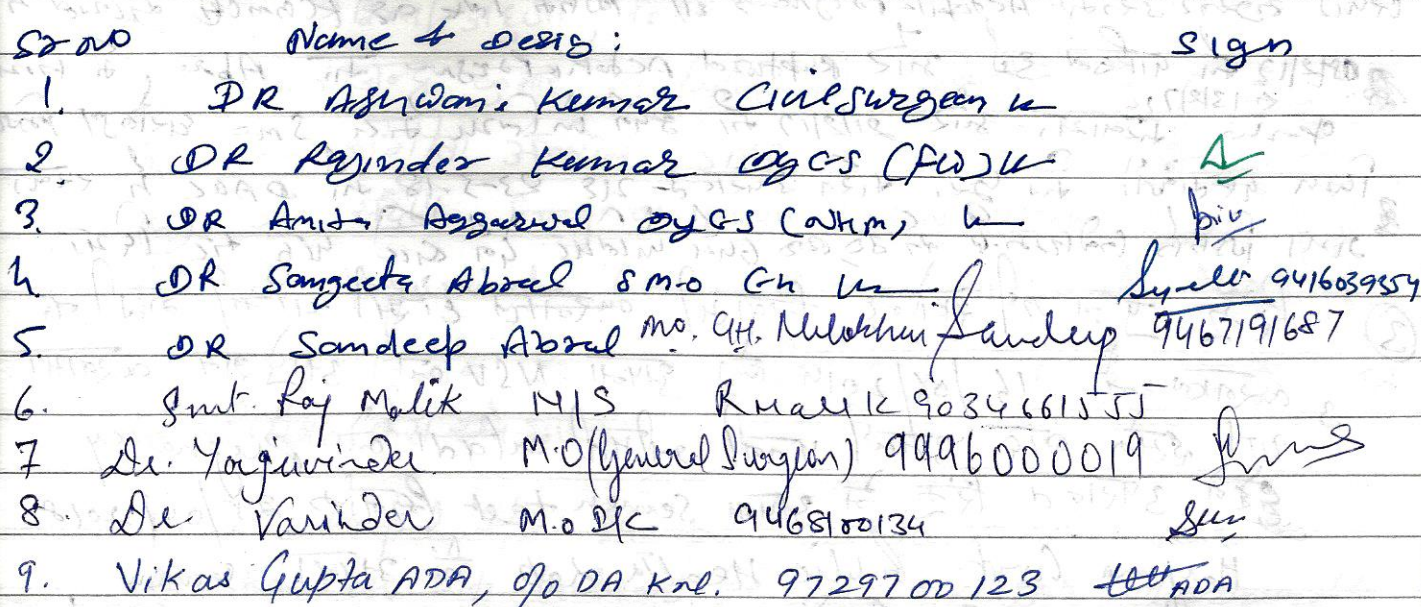 Sr no Name & Desig: Sign
1. DR Ashwani Kumar Civil Surgeon
2. DR Rajinder Kumar DyCS (FW)
3. DR Amita Aggarwal DyCS (NHM)
4 DR Sangeeta Abrol SMO GH 9416039354
5. DR Sandeep Abrol MO. GH. Nilokheri Sandeep 9467191687
6. Smt. Raj Malik N/S RMalik 9034661555
7 Dr. Yogwinder M.O (General Surgeon) 9996000019
8. Dr Varinder M.O 9468100134
9. Vikas Gupta ADA, o/o DA Knl. 9729700123 ADA